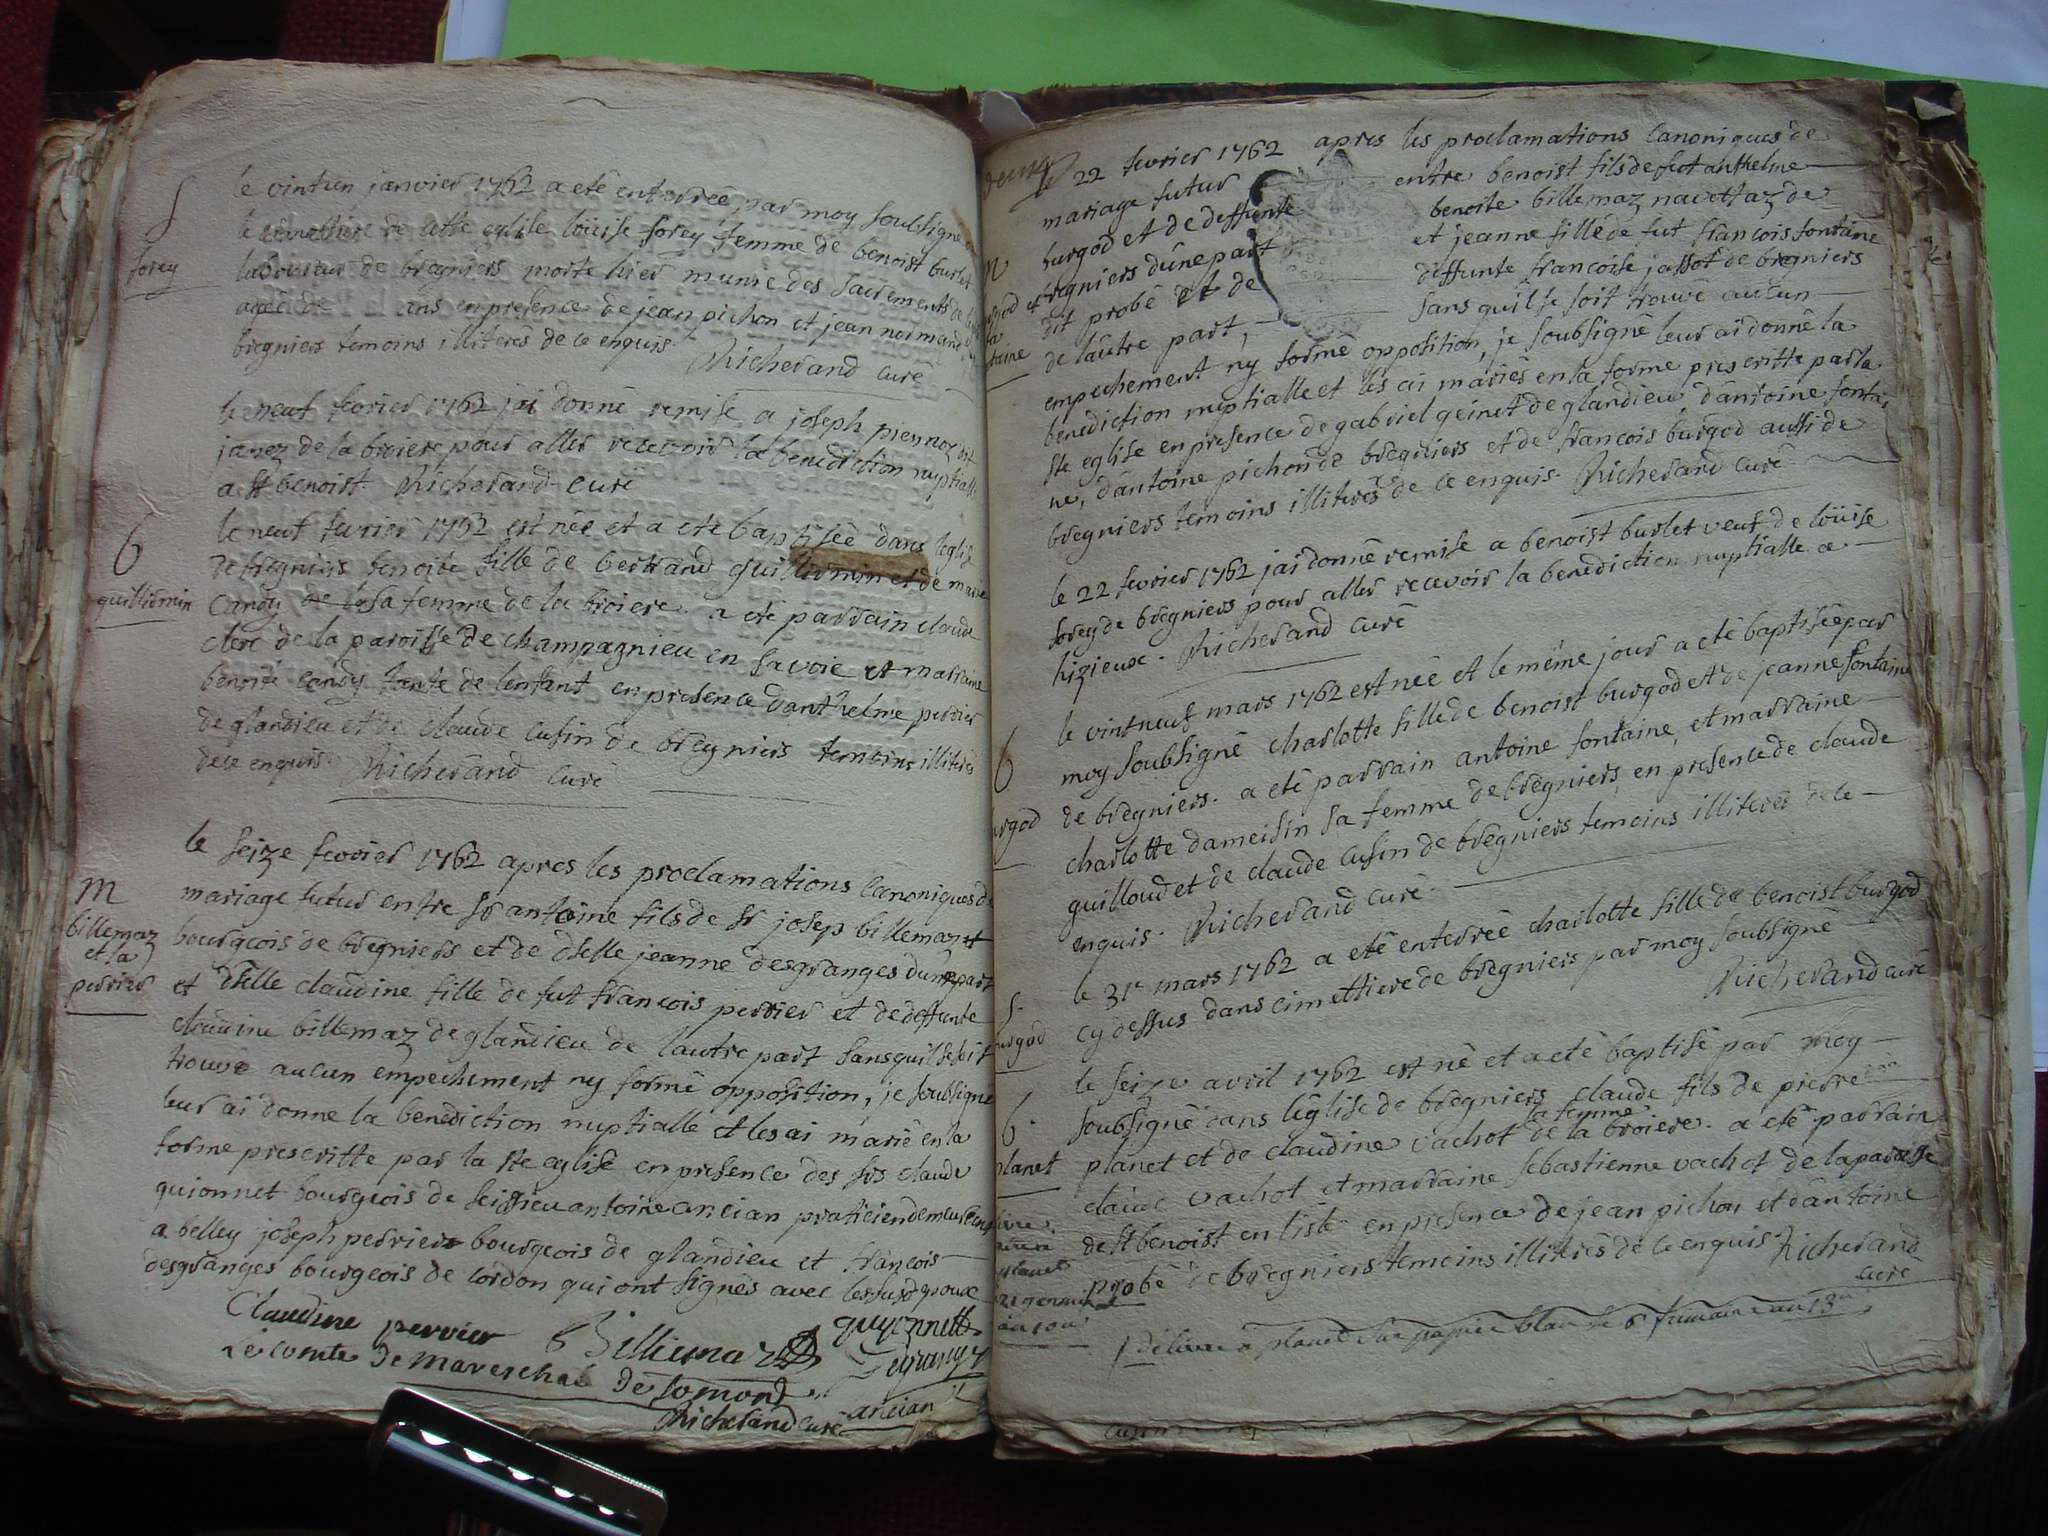 S
forey
le vintun janvier 1762 a eté enterreé par moy soubsigné
le cimettiere de cette eglise loüise forey femme de benoist burlet
laboureur de bregniers morte hier munie des sacrements de
ageé de ans en presence de jean pichon et jean normand
bregniers temoins illiterés de ce enquis. Richerand curé
le neuf fevrier 1762 j'ai donné remise a joseph piennoz dit
janez de la broiere pour aller recevoir la benediction nuptialle
a st benoist. Richerand curé
6
quillirmin
le neuf fevrier 1762 est née et a eté baptiseé dans leglise
de bregniers benoite fille de bertrand quillirmin et de marie
Candy sa femme de la broiere. a eté parrain claude
clerc de la paroisse de champagnieu en savoie et marraine
benoite candy tante de lenfant en presence danthelme perrier
de glandieu et de claude cusin de bregniers temoins illiterés
de ce enquis. Richerand curé
M
billemaz
et la
perrier
le seize fevrier 1762 apres les proclamations canoniques de
mariage futur entre sr antoine fils de sr josep billemaz
bourgeois de bregniers et de dselle jeanne desgranges dune part
et dselle claudine fille de fut francois perrier et de deffunte
claudine billemaz de glandieu de lautre part sans quil se soit
trouvé aucun empechement ny formé opposition, je soubsigné
leur ai donné la benediction nuptialle et les ai marié en la
forme prescritte par la ste eglise en presence des srs claude
quionnet bourgeois de seissieu antoine ancian praticien demeurant
a belley joseph perrier bourgeois de glandieu et francois
desgranges bourgeois de cordon qui ont signés avec les susd epoux
Claudine perrier Billiemaz guyonnett
Le comte de Mareschal de somond
Richerand curé ancian
22 fevrier 1762 apres les proclamations canoniques de
mariage futur entre benoist fils de fut anthelme
burgod et de deffunte benoite billemaz nacettaz de
bregniers dune part et jeanne fille de fut francois fontaine
dit probé et de deffunte francoise jassot de bregniers
de lautre part, sans quil se soit trouvé aucun
empechement ny formé opposition, je soubsigné leur ai donné la
benediction nuptialle et les ai mariés en la forme prescritte par la
ste eglise en presence de gabriel geinet de glandieu dantoine fontai
ne, dantoine pichon de bregniers et de francois burgod aussi de
bregniers temoins illiterés de ce enquis. Richerand curé
le 22 fevrier 1762 j'ai donné remise a benoist burlet veuf de loüise
forey de bregniers pour aller recevoir la benediction nuptialle a
hizieux. Richerand curé
6
rgod
le vintneuf mars 1762 est née et le même jour a eté baptiseé par
moy soubsigné charlotte fille de benoist burgod et de jeanne fontaine
de bregniers. a eté parrain antoine fontaine, et marraine
charlotte dameisin sa femme de bregniers, en presence de claude
guilloud et de claude cusin de bregniers temoins illiterés de ce
enquis. Richerand curé
S.
urgod
le 31e mars 1762 a eté enterreé charlotte fille de benoist burgod
cy dessus dans cimettiere de bregniers par moy soubsigné
Richerand curé
6.
planet
le seize avril 1762 est né et a eté baptisé par moy
soubsigné dans l'église de bregniers claude fils de pierre
planet et de claudine vachot sa femme de la broiere. a eté parrain
claude vachot et marraine sebastienne vachot de la paroisse
de st benoist en liste en presence de jean pichon et dantoine
probé de bregniers temoins illiterés de ce enquis Richerand
curé